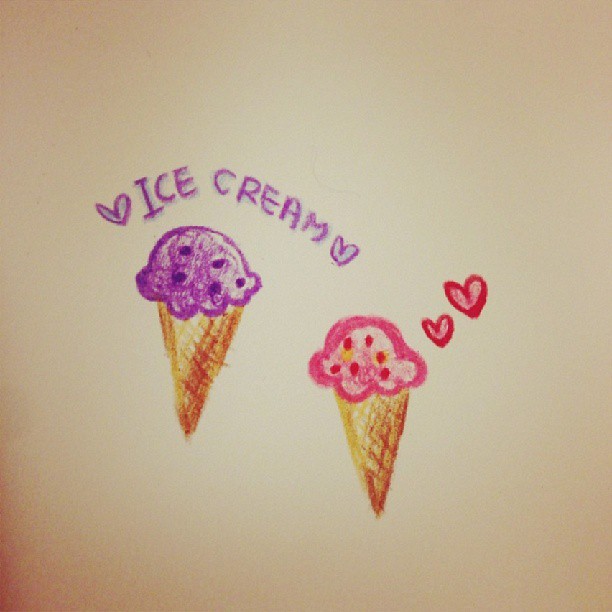 ICE CREAM